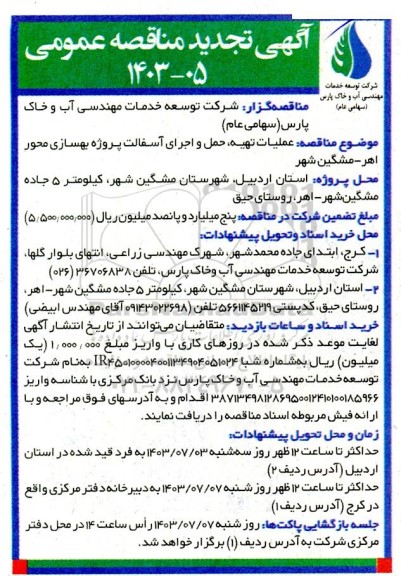 آگهی تجدید مناقصه عمومی
۱۴۰۳-۰۵
شرکت توسعه خدمات
مهندسی آب و خاک پارس
(سهامی عام)
مناقصه‌گزار: شرکت توسعه خدمات مهندسی آب و خاک
پارس(سهامی عام)
موضوع مناقصه: عملیات تهیه، حمل و اجرای آسفالت پروژه بهسازی محور
اهر-مشگین شهر
محل پروژه: استان اردبیل، شهرستان مشگین شهر، کیلومتر ۵ جاده
مشگین‌شهر-اهر، روستای حیق
مبلغ تضمین شرکت در مناقصه: پنج میلیارد و پانصد میلیون ریال (۵/۵۰۰/۰۰۰/۰۰۰)
محل خرید اسناد وتحویل پیشنهادات:
۱- کرج، ابتدای جاده محمدشهر، شهرک مهندسی زراعی، انتهای بلوار گلها،
شرکت توسعه خدمات مهندسی آب وخاک پارس، تلفن ۳۶۷۰۶۸۳۸ (۰۲۶)
۲- استان اردبیل، شهرستان مشگین شهر، کیلومتر ۵جاده مشگین شهر-اهر،
روستای حیق، کدپستی ۵۶۶۱۱۴۵۲۱۹ تلفن (۰۹۱۴۳۰۲۲۶۹۸ آقای مهندس ابیضی)
خرید اسناد و ساعات بازدید: متقاضیان می‌توانند از تاریخ انتشار آگهی
لغایت موعد ذکر شده در روزهای کاری با واریز مبلغ ۱/۰۰۰/۰۰۰ (یک
میلیون) ریال به‌شماره شبا IR۴۵۰۱۰۰۰۰۴۰۰۱۱۳۴۹۰۴۰۵۱۰۲۴ به‌نام شرکت
توسعه خدمات مهندسی آب و خاک پارس نزد بانک مرکزی با شناسه واریز
۳۸۷۱۳۴۹۸۱۲۸۶۹۵۰۰۱۲۴۱۰۱۰۰۱۸۵۹۶۶ اقدام و به آدرسهای فوق مراجعه و با
ارائه فیش مربوطه اسناد مناقصه را دریافت نمایند.
زمان و محل تحویل پیشنهادات:
حداکثر تا ساعت ۱۲ ظهر روز سه‌شنبه ۱۴۰۳/۰۷/۰۳ به فرد قید شده در استان
اردبیل (آدرس ردیف ۲)
حداکثر تا ساعت ۱۲ ظهر روز شنبه ۱۴۰۳/۰۷/۰۷ به دبیرخانه دفتر مرکزی واقع
در کرج (آدرس ردیف ۱)
جلسه بازگشایی پاکت‌ها: روز شنبه ۱۴۰۳/۰۷/۰۷ رأس ساعت ۱۴ در محل دفتر
مرکزی شرکت به آدرس ردیف (۱) برگزار خواهد شد.